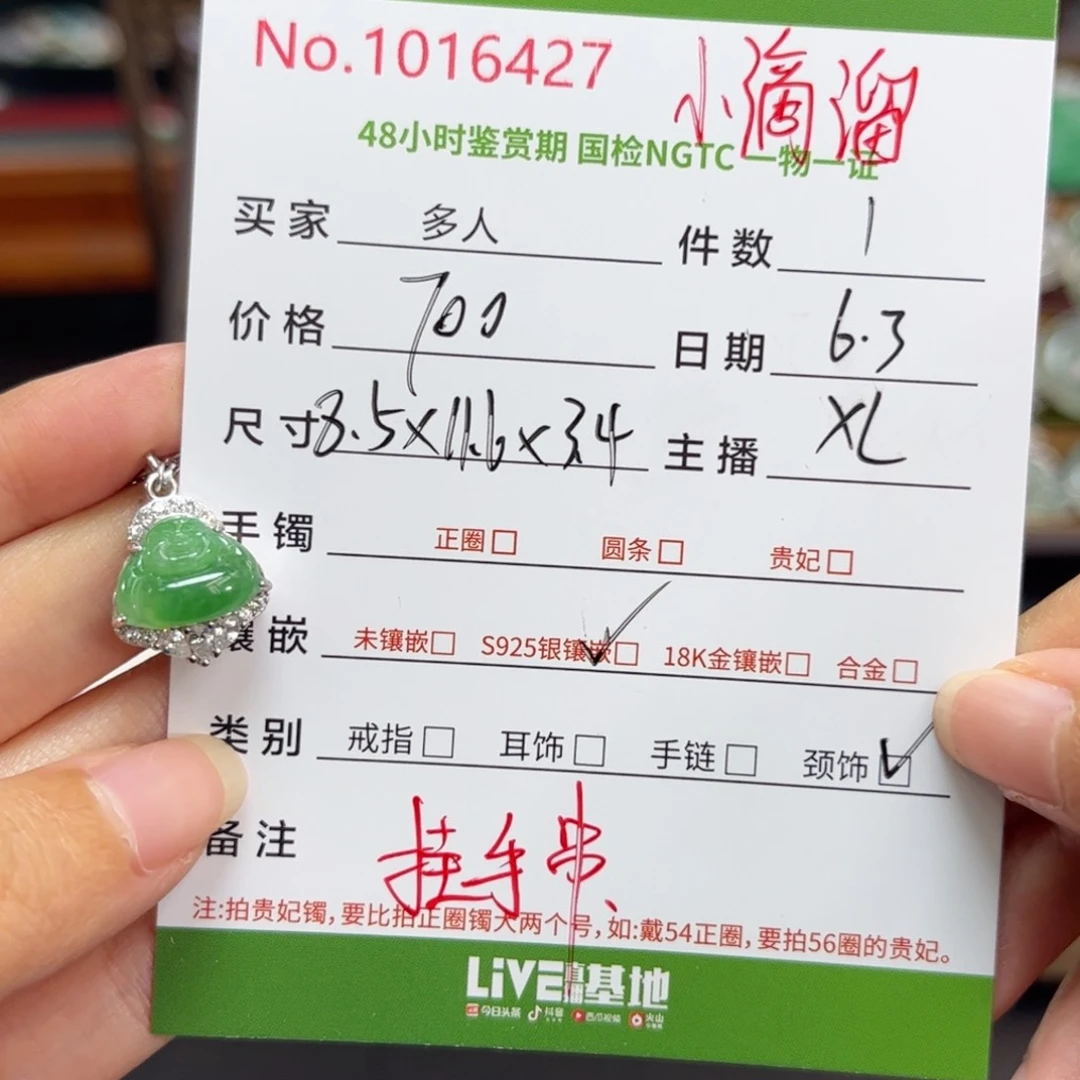 No.1016427
小滴溜
48小时鉴赏期 国检NGTC 一物一证
买家 多人 件数 1
价格 700 日期 6.3
尺寸 8.5×11.6×3.4 主播 XL
手镯 正圈□ 圆条□ 贵妃□
镶嵌 未镶嵌□ S925银镶嵌□✓ 18K金镶嵌□ 合金□
类别 戒指□ 耳饰□ 手链□ 颈饰☑
备注 挂手串、
注:拍贵妃镯,要比拍正圈镯大两个号,如:戴54正圈,要拍56圈的贵妃。
LiVE直播基地
今日头条 抖音 西瓜视频 火山